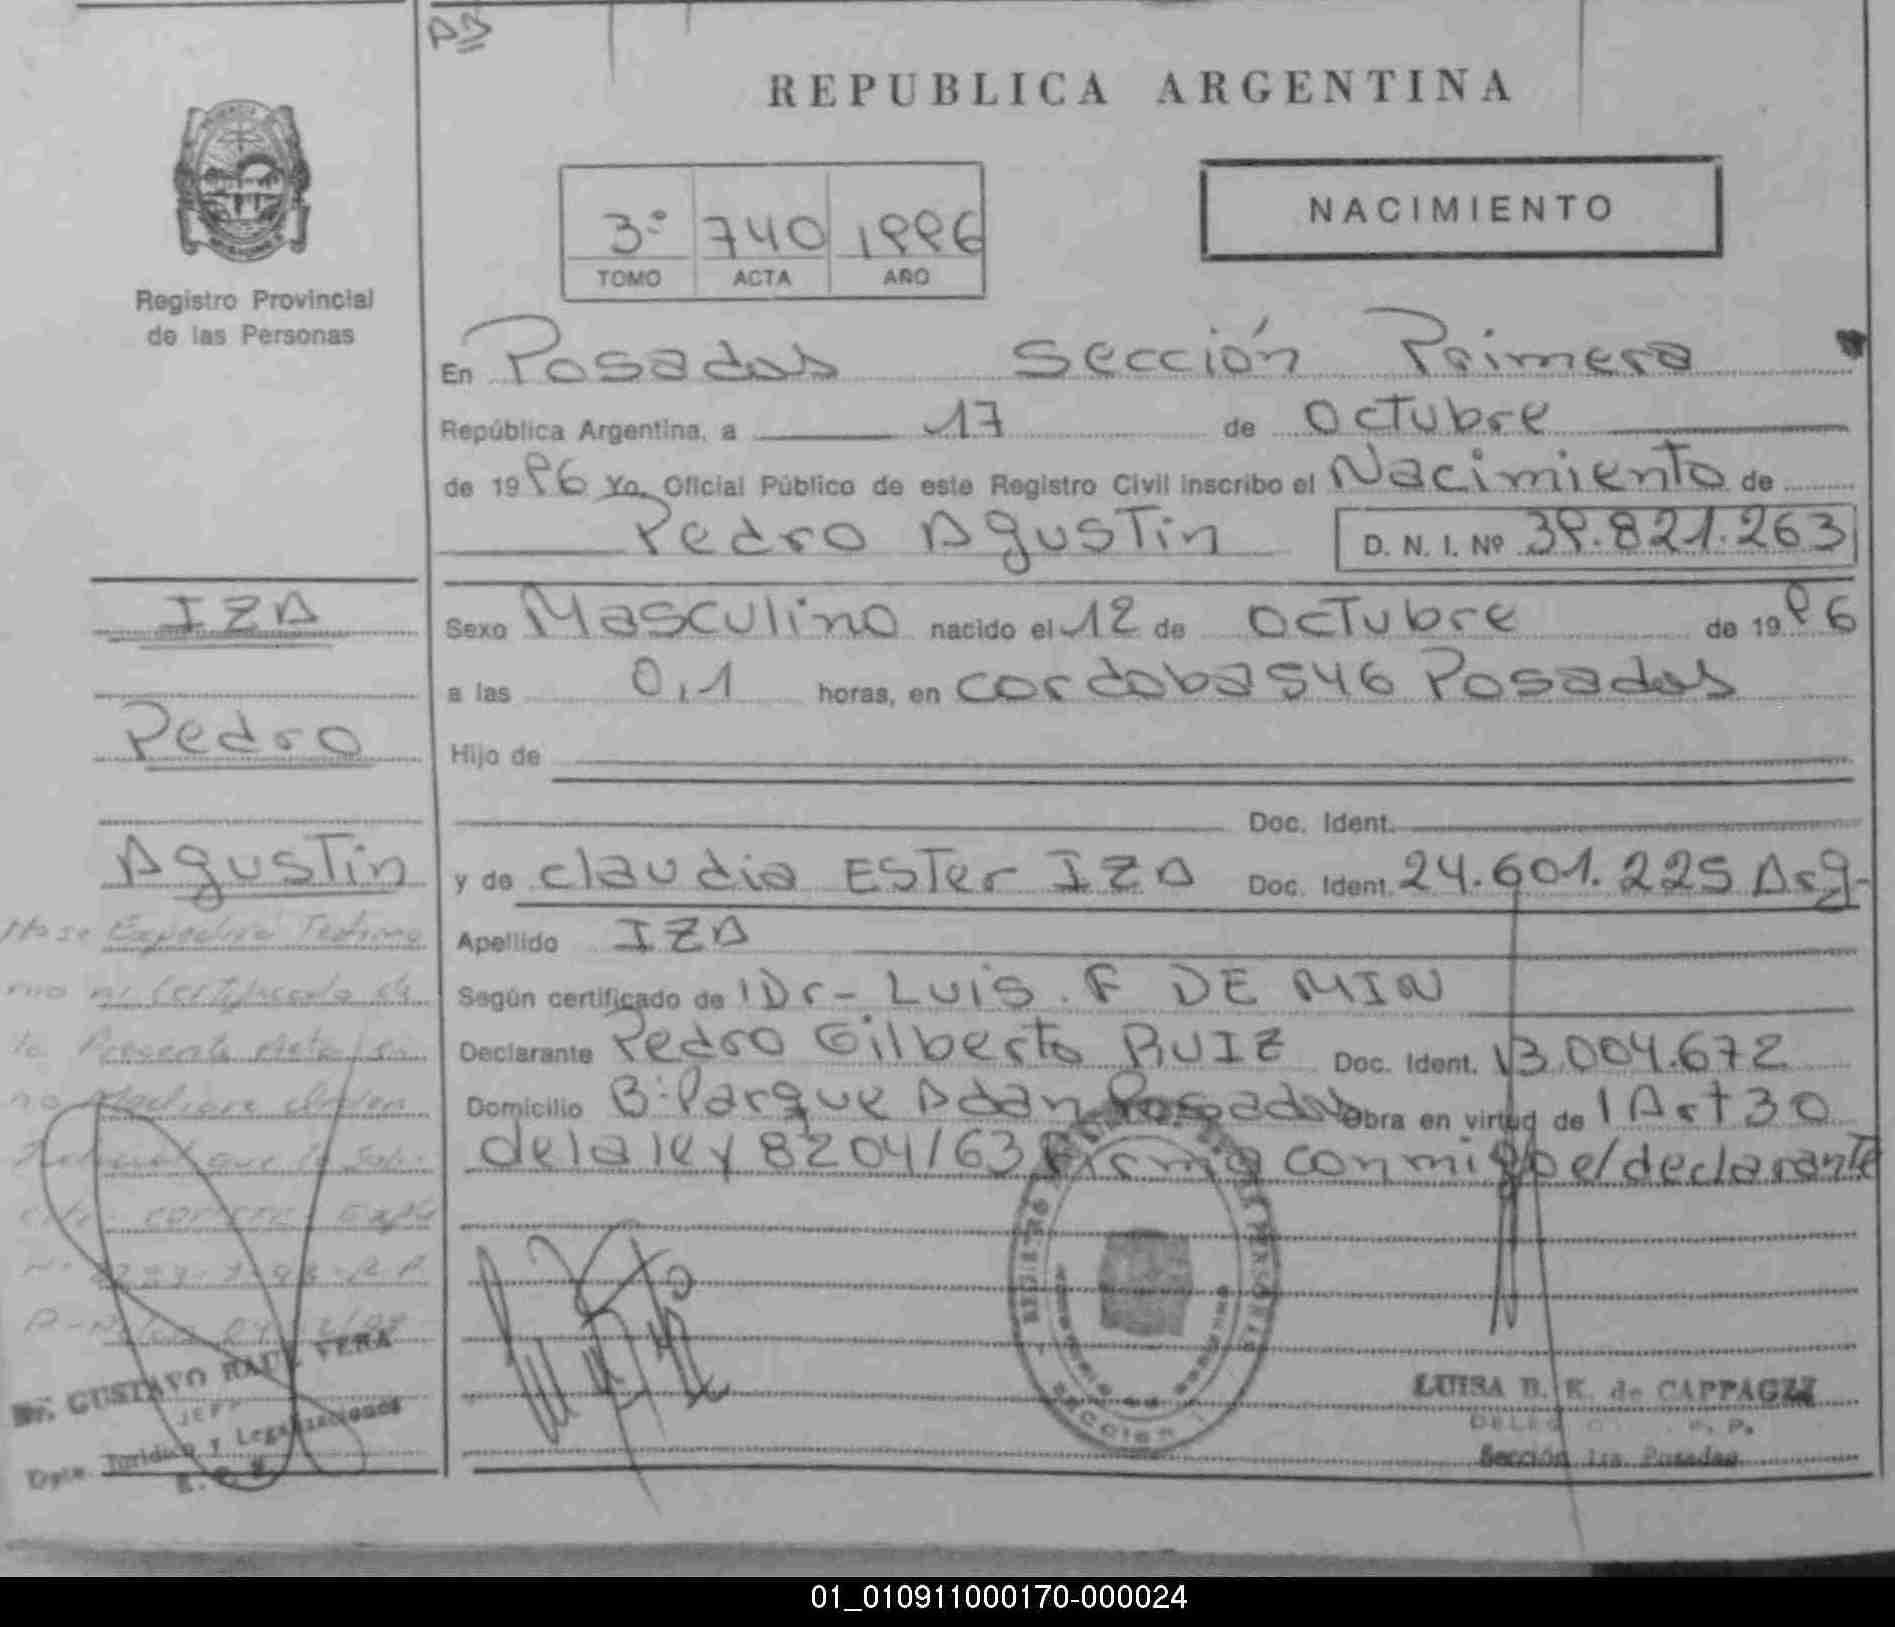 AB
REPUBLICA ARGENTINA
3º 740 1996
TOMO ACTA AÑO
NACIMIENTO
Registro Provincial
de las Personas
En Posadas Sección Primera
República Argentina, a 17 de Octubre
de 1996 Yo, Oficial Público de este Registro Civil inscribo el Nacimiento de
Pedro Agustin D. N. I. Nº 39.821.263
IZA
Pedro
Agustin
Sexo Masculino nacido el 12 de Octubre de 1996
a las 0,1 horas, en cordoba 546 Posadas
Hijo de
Doc. Ident.
y de claudia Ester IZA Doc. Ident. 24.601.225 Arg-
Apellido IZA
Según certificado de Dr- Luis. F DE MIN
Declarante Pedro Gilberto RUIZ Doc. Ident. 13.004.672
Domicilio B: Parque Adan Posadas Obra en virtud de Art 30
de la ley 8204/63 Firma conmigo el declarante
No se Expedira Testimo
nio ni Certificado de
la Presente Acta si
no Mediare Orden
que lo Soli-
Dr. GUSTAVO RAUL VERA
JEFE
Dpto. Jurídico y Legalizaciones
REGISTRO PERSONAS
SECCION
LUISA B. K. de CAPPAGZZ
Sección 1ra. Posadas
01_010911000170-000024